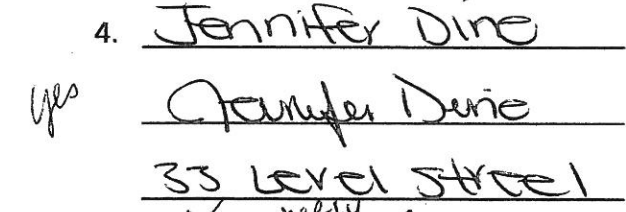 4. Jennifer Dine
yes Jennifer Dine
33 Level Street